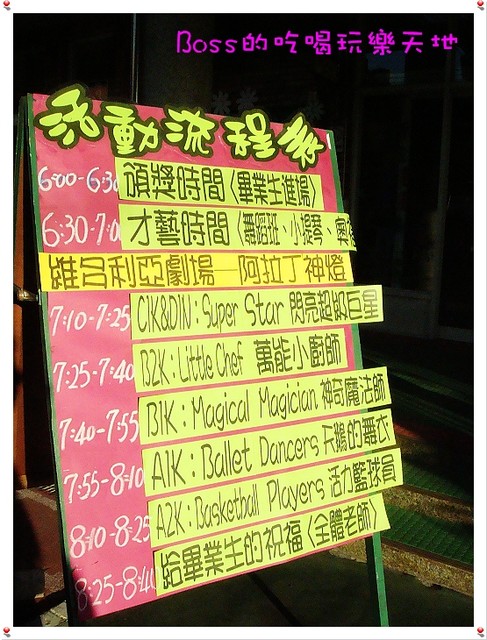 Boss的吃喝玩樂天地
活動流程表
6:00-6:30 頒獎時間〈畢業生進場〉
6:30-7:0 才藝時間〈舞蹈班、小提琴、奧
維多利亞劇場—阿拉丁神燈
7:10-7:25 C1K&D1N:Super Star 閃亮超級巨星
7:25-7:40 B2K:Little Chef 萬能小廚師
7:40-7:55 B1K:Magical Magician 神奇魔法師
7:55-8:10 A1K:Ballet Dancers 天鵝的舞衣
8:10-8:25 A2K:Basketball Players 活力籃球員
8:25-8:40 給畢業生的祝福〈全體老師〉